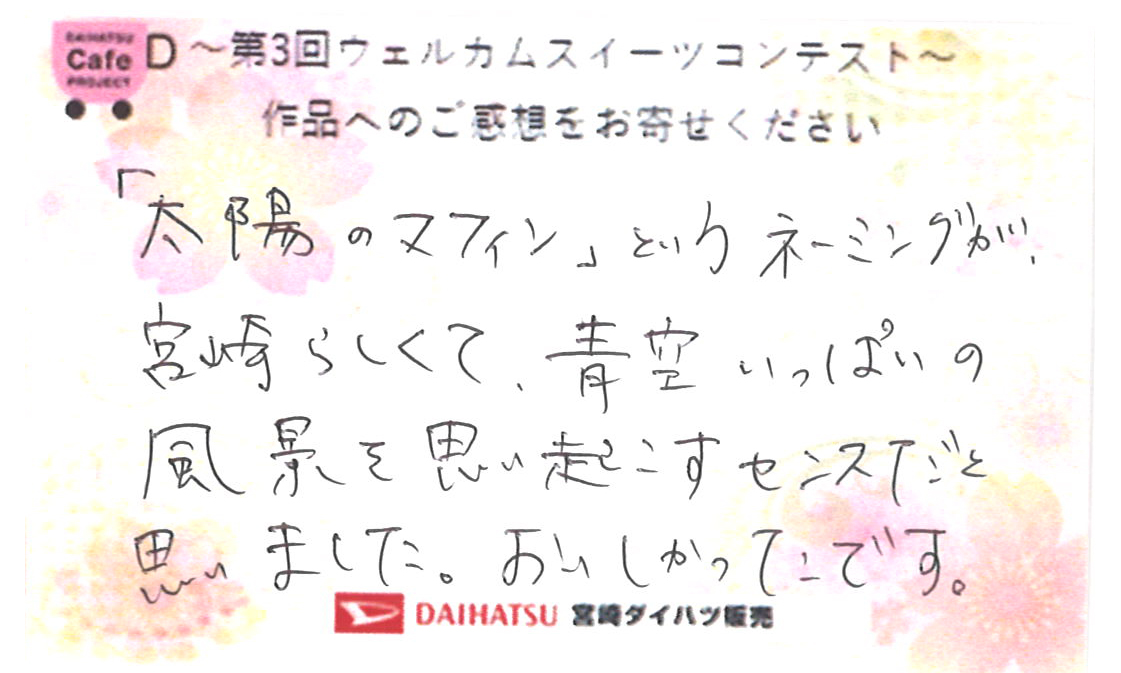 DAIHATSU
Cafe
PROJECT
D ～第3回ウェルカムスイーツコンテスト～
作品へのご感想をお寄せください
「太陽のマフィン」というネーミングが、
宮崎らしくて、青空いっぱいの
風景を思い起こすセンスだと
思いました。おいしかったです。
DAIHATSU 宮崎ダイハツ販売